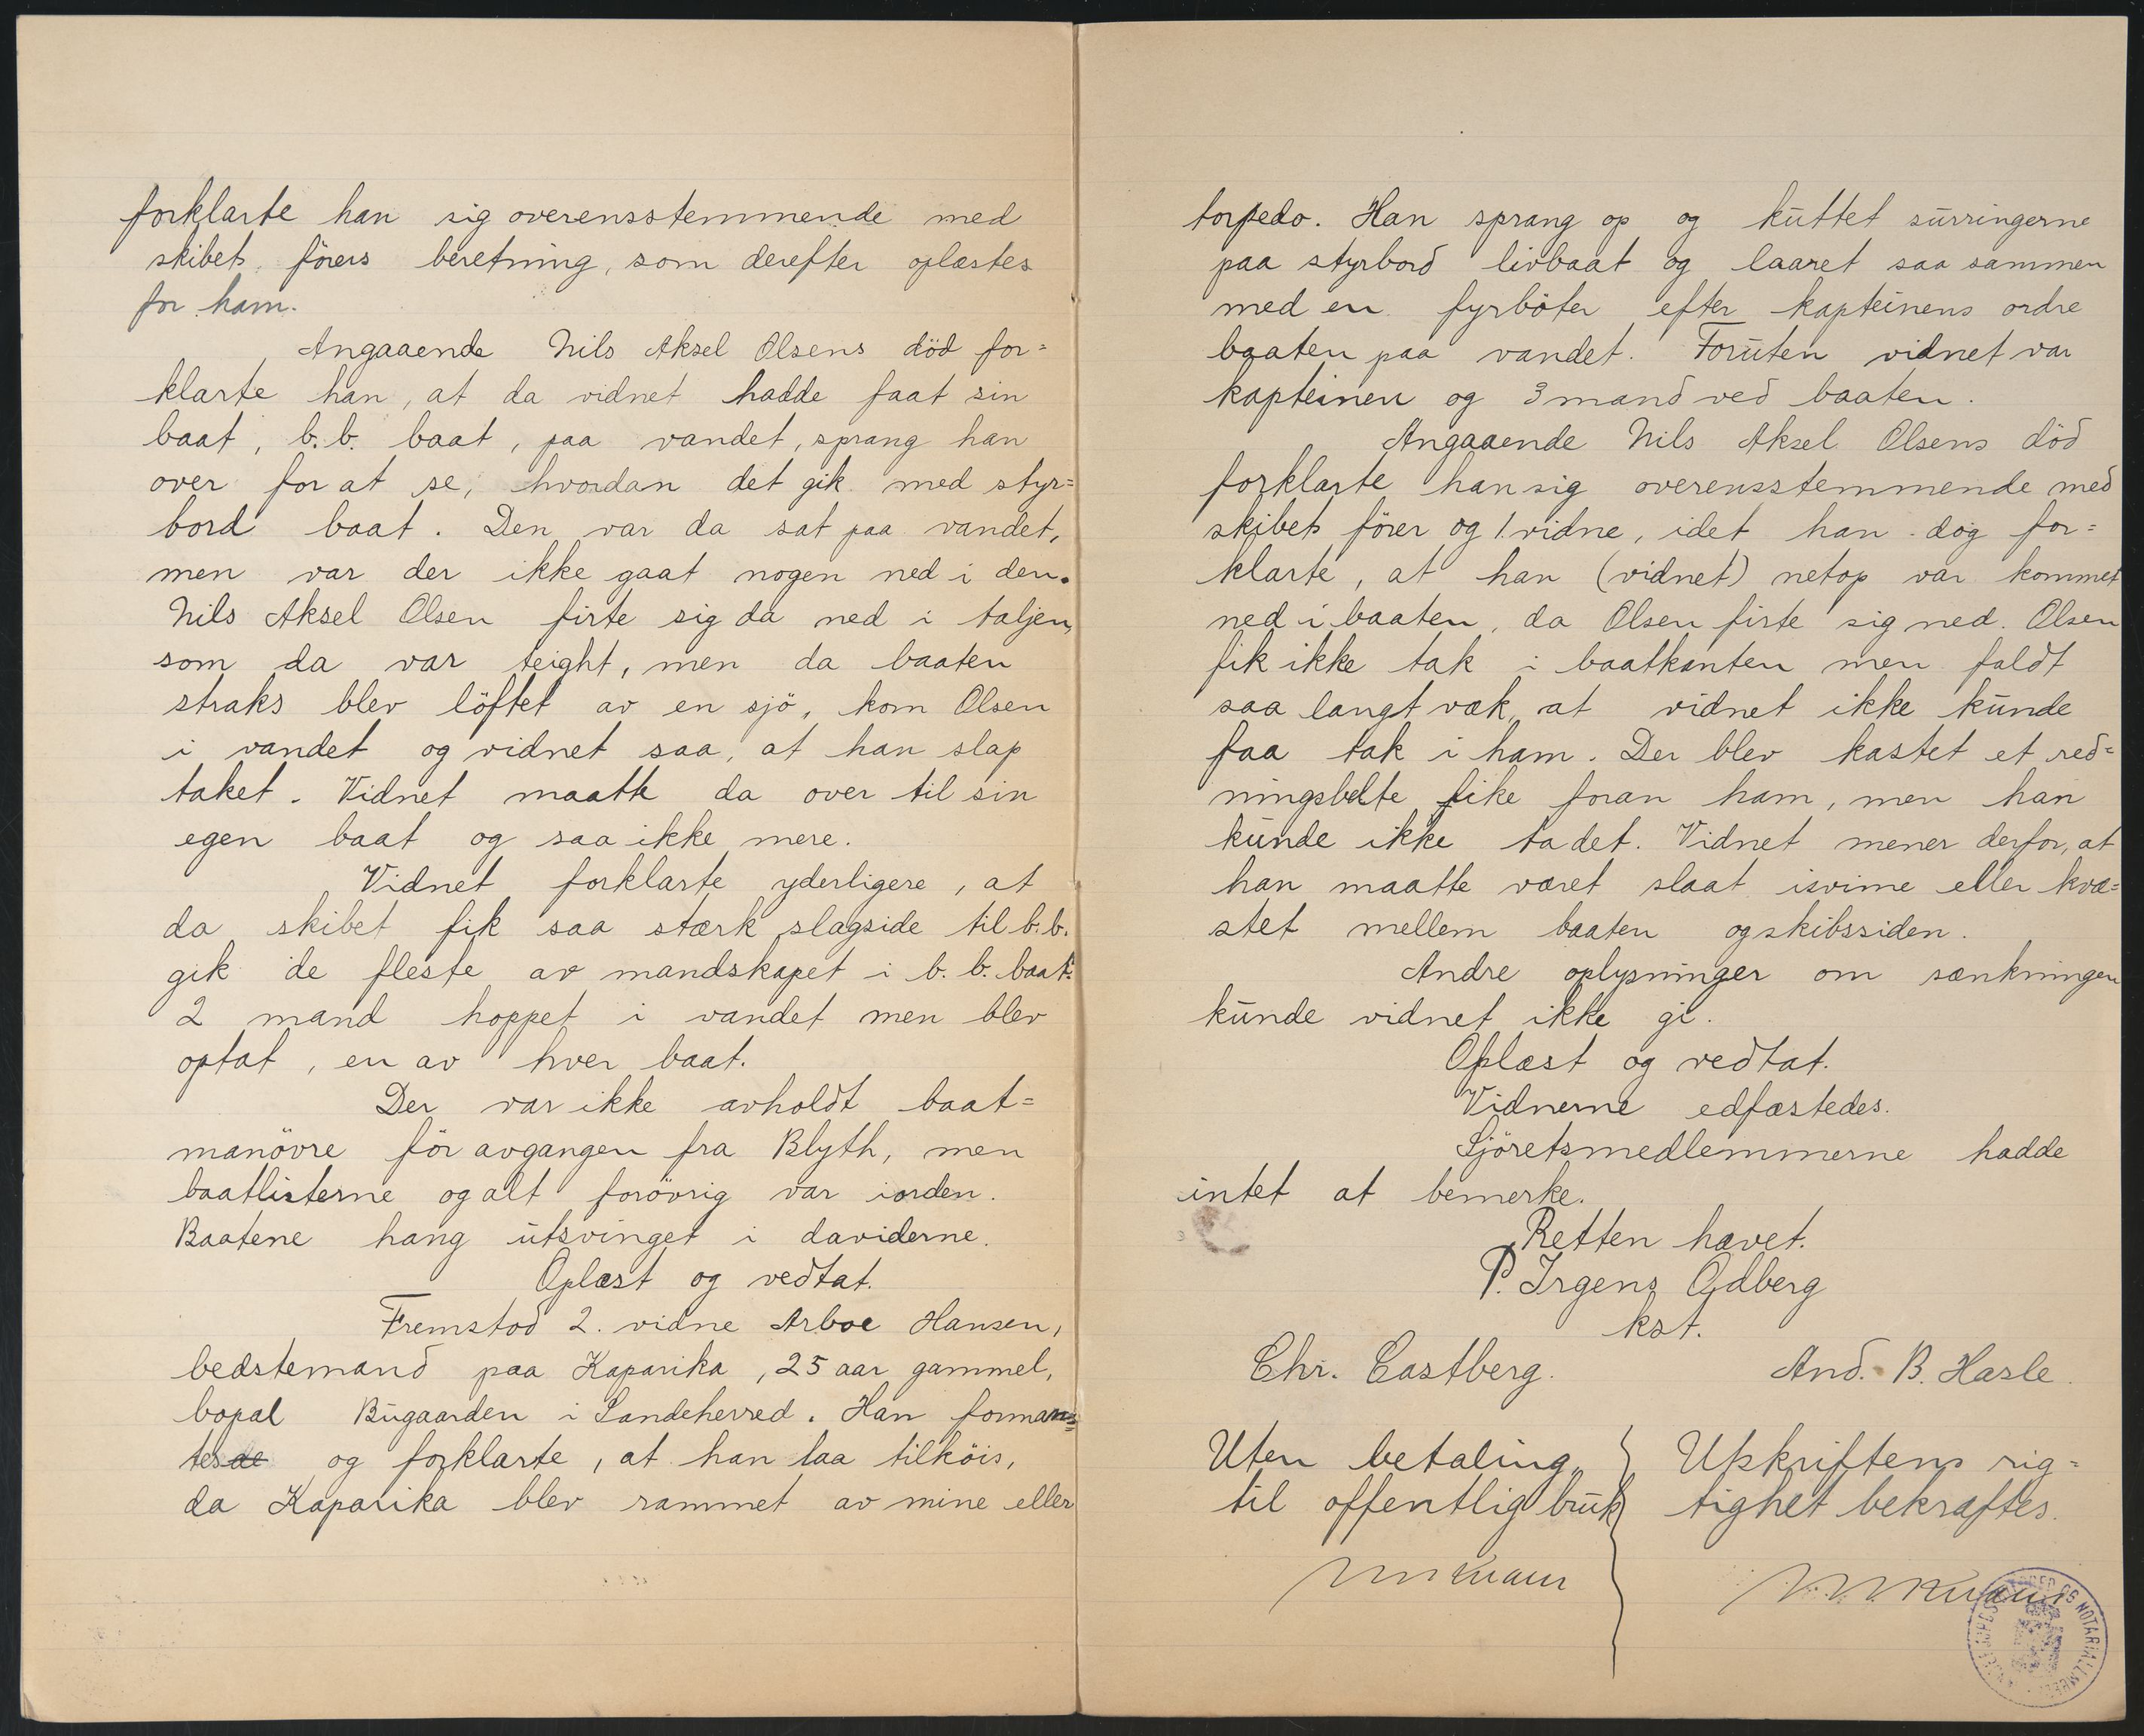 forklarte han sig overensstemmende med
skibets förers beretning, som derefter oplæstes
for ham.
Angaaende Nils Aksel Olsens död for=
klarte han, at da vidnet hadde faat sin
baat, b.b. baat, paa vandet, sprang han
over for at se, hvordan det gik med styr=
bord baat. Den var da sat paa vandet,
men var der ikke gaat nogen ned i den.
Nils Aksel Olsen firte sig da ned i taljen,
som da var teight, men da baaten
straks blev löftet av en sjö, kom Olsen
i vandet og vidnet saa, at han slap
taket. Vidnet maatte da over til sin
egen baat og saa ikke mere.
Vidnet forklarte yderligere, at
da skibet fik saa stærk slagside til b.b.
gik de fleste av mandskapet i b.b. baat.
2 mand hoppet i vandet men blev
optat, en av hver baat.
Der var ikke avholdt baat=
manövre för avgangen fra Blyth, men
baatlisterne og alt forövrig var iorden.
Baatene hang utsvinget i daviderne.
Oplæst og vedtat.
Fremstod 2. vidne Arboe Hansen,
bedstemand paa Kaparika, 25 aar gammel,
bopal Bugaarden i Sandeherred. Han forman=
tesde og forklarte, at han laa tilköis,
da Kaparika blev rammet av mine eller
torpedo. Han sprang op og kuttet surringerne
paa styrbord livbaat og laaret saa sammen
med en fyrböter efter kapteinens ordre
baaten paa vandet. Foruten vidnet var
kapteinen og 3 mand ved baaten.
Angaaende Nils Aksel Olsens död
forklarte han sig overensstemmende med
skibets förer og 1. vidne, idet han dog for=
klarte, at han (vidnet) netop var kommet
ned i baaten, da Olsen firte sig ned. Olsen
fik ikke tak i baatkanten men faldt
saa langt væk, at vidnet ikke kunde
faa tak i ham. Der blev kastet et red=
ningsbelte like foran ham, men han
kunde ikke ta det. Vidnet mener derfor, at
han maatte været slaat isvime eller kvæ=
stet mellem baaten og skibssiden.
Andre oplysninger om sænkningen
kunde vidnet ikke gi.
Oplæst og vedtat.
Vidnerne edfæstedes.
Sjöretsmedlemmerne hadde
intet at bemerke.
Retten hævet.
P. Irgens Odberg
kst.
Chr. Castberg. And. B. Hasle.
Uten betaling
til offentlig bruk
Utskriftens rig=
tighet bekræftes.